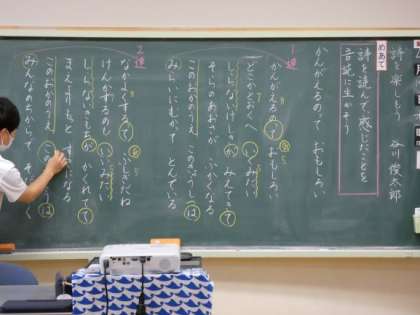 詩を楽しもう 谷川俊太郎
めあて
詩を読んで、感じたことを
音読に生かそう
かんがえるのって おもしろい
1連
かんがえるのって おもしろい
どこかとおくへ いくみたい
しらないけしきが みえてきて
そらのあおさが ふかくなる
このおかのうえ このきょうしつは
みらいにむかって とんでいる
2連
なかよくするって ふしぎだね
けんかするのも いいみたい
しらないきもちが かくれてて
まえよりもっと すきになる
このおかのうえ
みんなのちからで